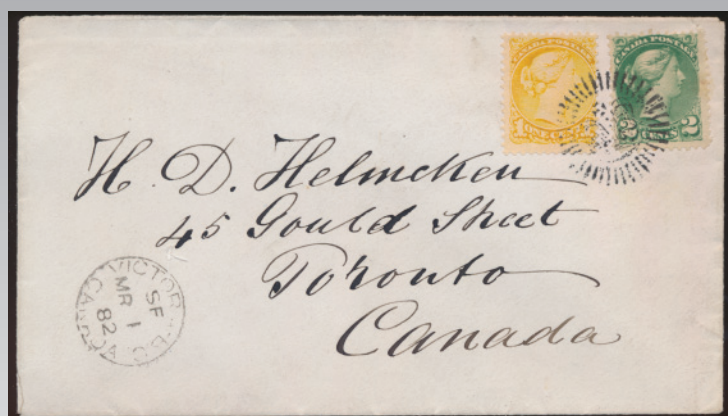 CANADA POSTAGE
CANADA POSTAGE
ONE CENT
2 CENTS 2
H. D. Helmcken
45 Gould Street
Toronto
Canada
VICTORIA B.C.
SF
MR 1
82
CANADA